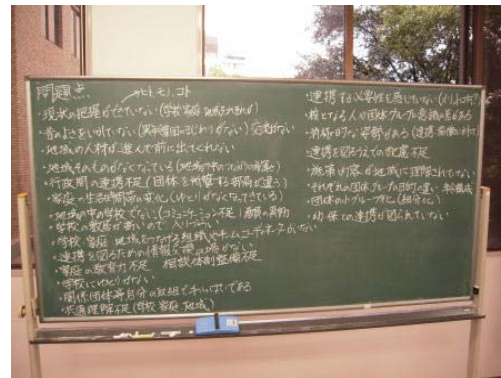 問題点
ヒト、モノ、コト
・現状の把握ができていない(学校、家庭、地域
・昔のよさを
・地域の人材が進んで前に出てくれない
・地域そのものがなくなっている(地域の中のつながりの希薄
・行政間の連携不足(団体を所管する部局が違う)
・家庭の生活時間帯の変化(ゆとりがなくなってきている)
・地域の中の学校でない(コミュニケーション不足)
・学校の敷居が高いので入りづらい
・学校、家庭、地域をつなげる組織やチームコーディネータがいない
・連携を図るための情報交換の場がない
・家庭の教育力不足 相談体制整備不足
・学校にゆとりがない
・関係団体等自分の取組で手いっぱいである
・共通理解不足(学校、家庭、地域)
・連携する必要性を感じていない(メリットは何?)
・核となる人や団体グループの意識の差がある
・消極的な幹部がある(連携
・連携を図るうえでの数量不足
・施策内容が地域に理解されていない
・それぞれの団体グループの目的の違い、年齢構成
・団体の小グループ化(細分化)
・幼保での連携が図られていない